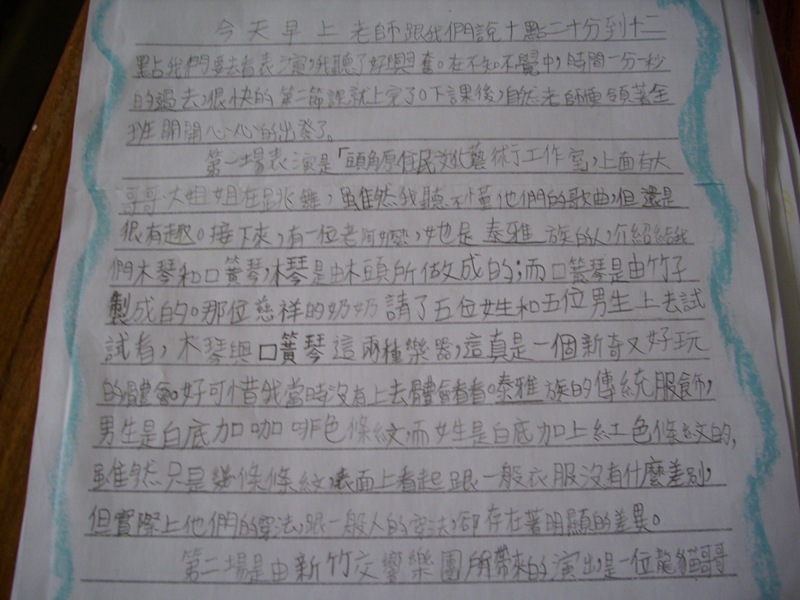 今天早上老師跟我們說十點二十分到十二
點我們要去看表演,我聽了好興奮。在不知不覺中,時間一分一秒
的過去,很快的第二節課就上完了。下課後,自然老師帶領著全
班開開心心的出發了。
第一場表演是「頭角原住民文化藝術工作室,上面有大
哥哥、大姐姐在跳舞,雖然我聽不懂他們的歌曲,但還是
很有趣。接下來,有一位老阿嬤,她是泰雅族的人,介紹給我
們木琴和口簧琴,木琴是由木頭所做成的;而口簧琴是由竹子
製成的。那位慈祥的奶奶請了五位女生和五位男生上去試
試看,木琴與口簧琴這兩種樂器,這真是一個新奇又好玩
的體會。好可惜我當時沒有上去體會看看。泰雅族的傳統服飾,
男生是白底加咖啡色條紋,而女生是白底加上紅色條紋的,
雖然只是幾條條紋,表面上看起跟一般衣服沒有什麼差別,
但實際上他們的穿法,跟一般人的穿法,卻存在著明顯的差異。
第二場是由新竹交響樂團所帶來的演出,是一位龍貓哥哥